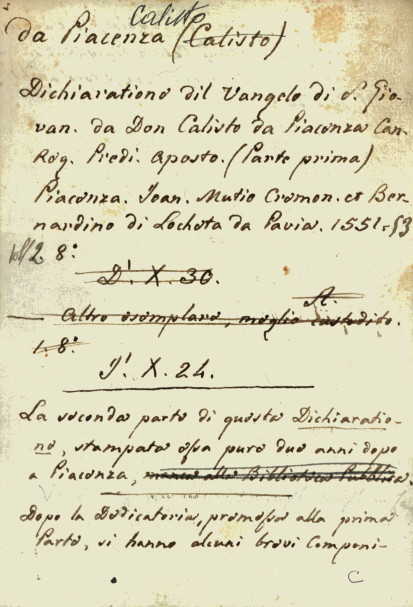 Calisto
da Piacenza (Calisto)
Dichiaratione dil Vangelo di S. Gio-
van. da Don Calisto da Piacenza Can.
Reg. Predi. Aposto. (Parte prima)
Piacenza. Ioan. Mutio Cremon. et Ber-
nardino di Lochota da Pavia. 1551-53
voll 2 8°.
D'. X. 30.
A.
Altro esemplare, meglio custodito.
1. 8°
I'. X. 24.
La seconda parte di questa Dichiaratio-
ne, stampata essa pure due anni dopo
a Piacenza, manca alla Biblioteca Pubblica.
Dopo la Dedicatoria, premessa alla prima
Parte, si hanno alcuni brevi Componi-
C